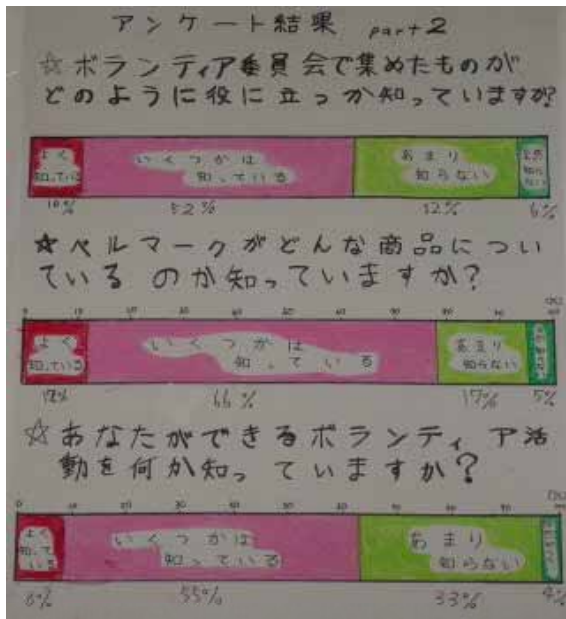 アンケート結果 part 2
☆ボランティア委員会で集めたものが
どのように役に立つか知っていますか?
よく
知っている
いくつかは
知っている
あまり
知らない
10%
52%
32%
6%
★ベルマークがどんな商品につい
ているのか知っていますか?
よく
知っている
いくつかは
知っている
あまり
知らない
12%
66%
17%
5%
☆あなたができるボランティア活
動を何か知っていますか?
よく
知って
いる
いくつかは
知っている
あまり
知らない
8%
55%
33%
4%